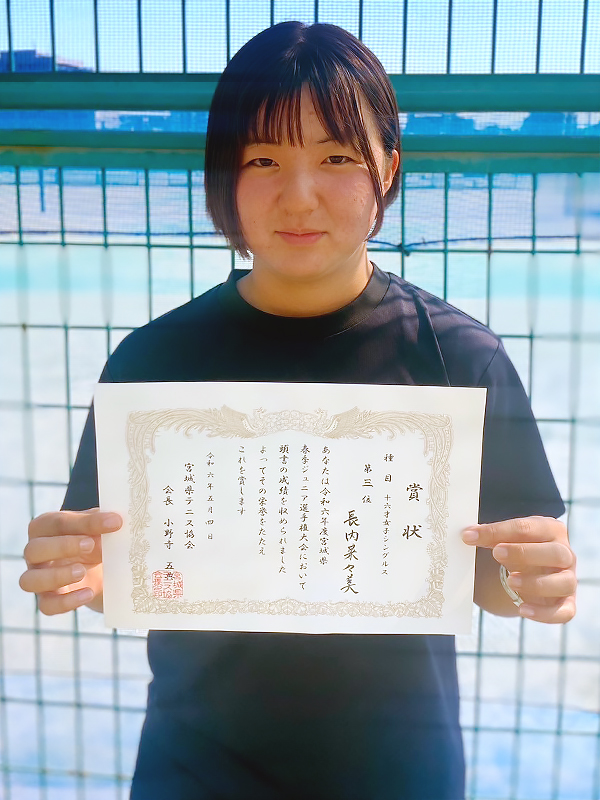 賞状
種目 十六才女子シングルス
第三位
長内菜々美
あなたは令和六年度宮城県
春季ジュニア選手権大会において
頭書の成績を収められました
よってその栄誉をたたえ
これを賞します
令和六年五月四日
宮城県テニス協会
会長 小野寺 五